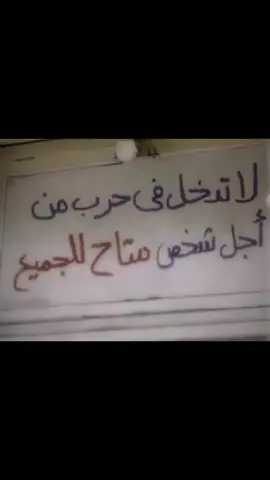 لا تدخل فى حرب من
أجل شخص متاح للجميع